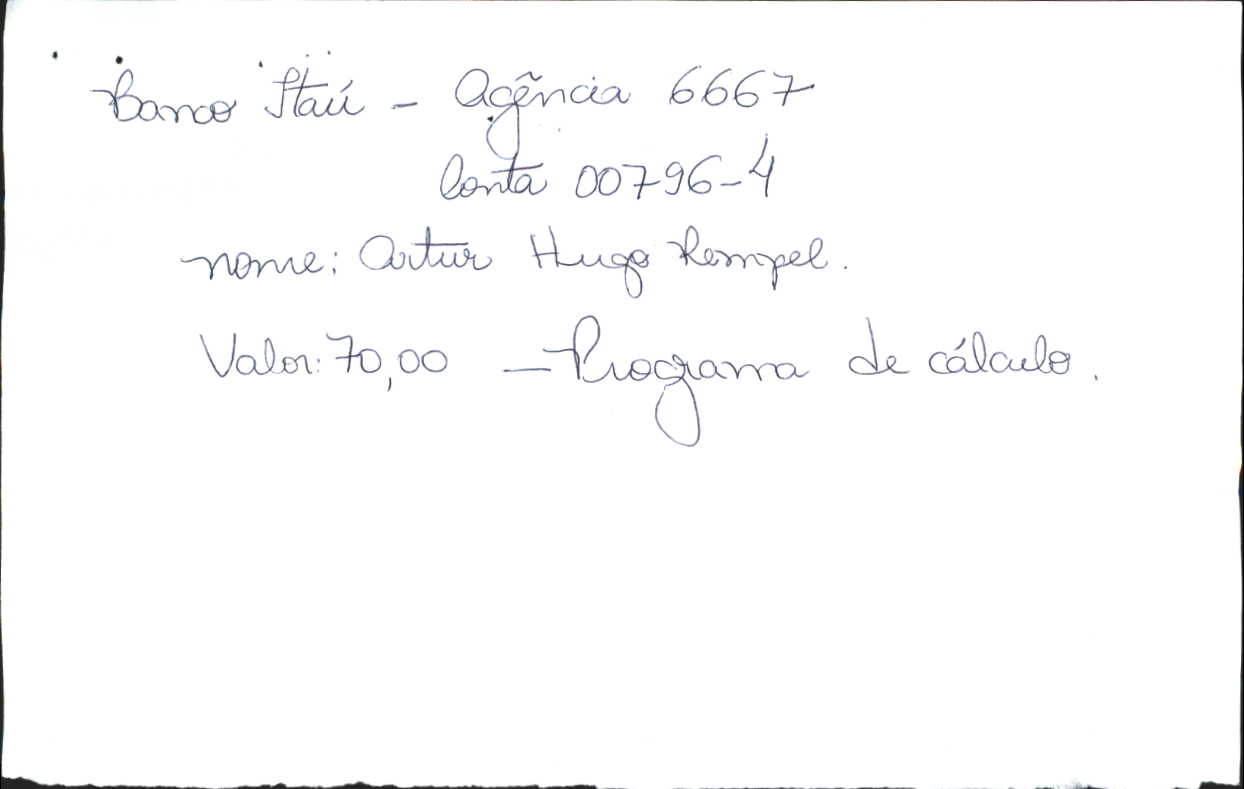 Banco Itaú - Agência 6667
Conta 00796-4
nome: Artur Hugo Rempel.
Valor: 70,00 - Programa de cálculo.